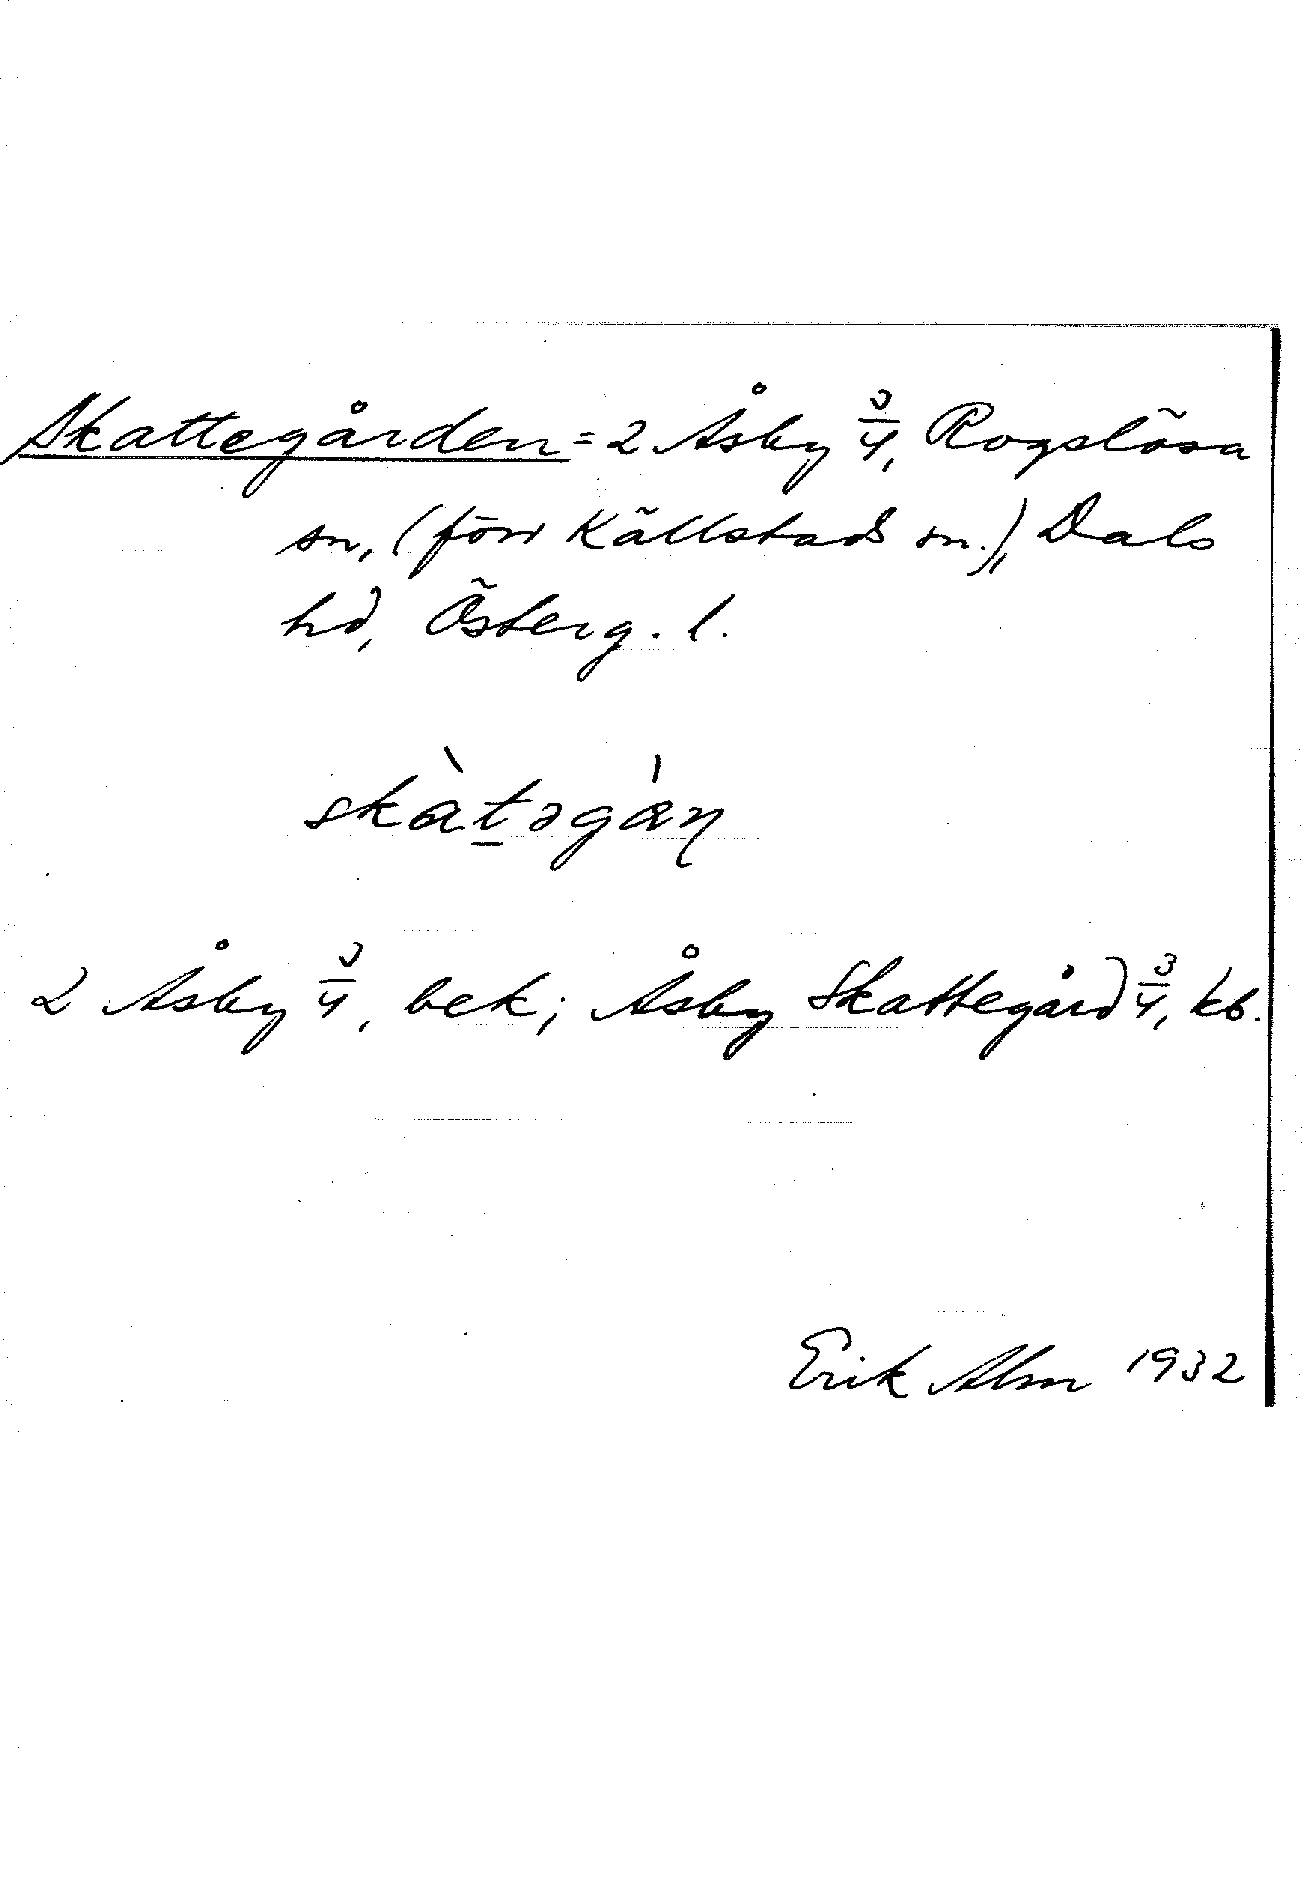 Skattegården = 2 Åsby 3/4, Rogslösa
sn, (förr Källstads sn.), Dals
hd, Österg. l.
skàt̠əgáṇ
2 Åsby 3/4, bek; Åsby Skattegård 3/4, kb.
Erik Alm 1932